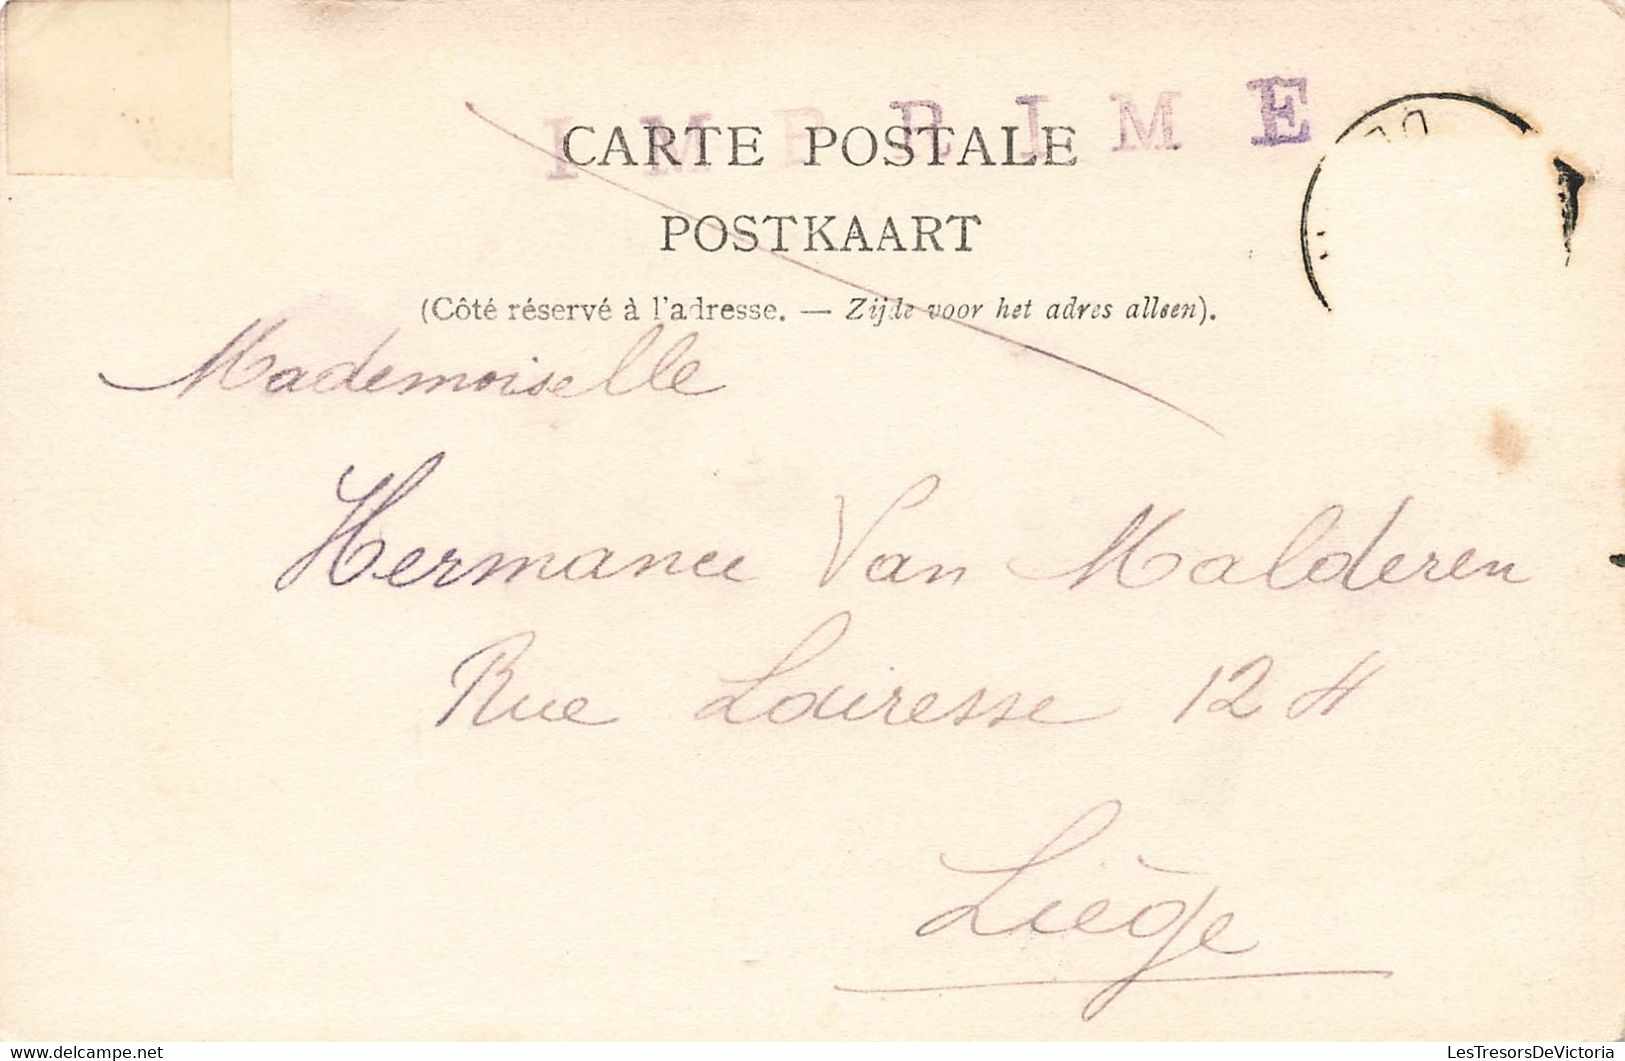 IMPRIME
CARTE POSTALE
POSTKAART
(Côté réservé à l'adresse. — Zijde voor het adres alleen).
Mademoiselle
Hermance Van Malderen
Rue Lairesse 124
Liège
delcampe.net
LesTresorsDeVictoria